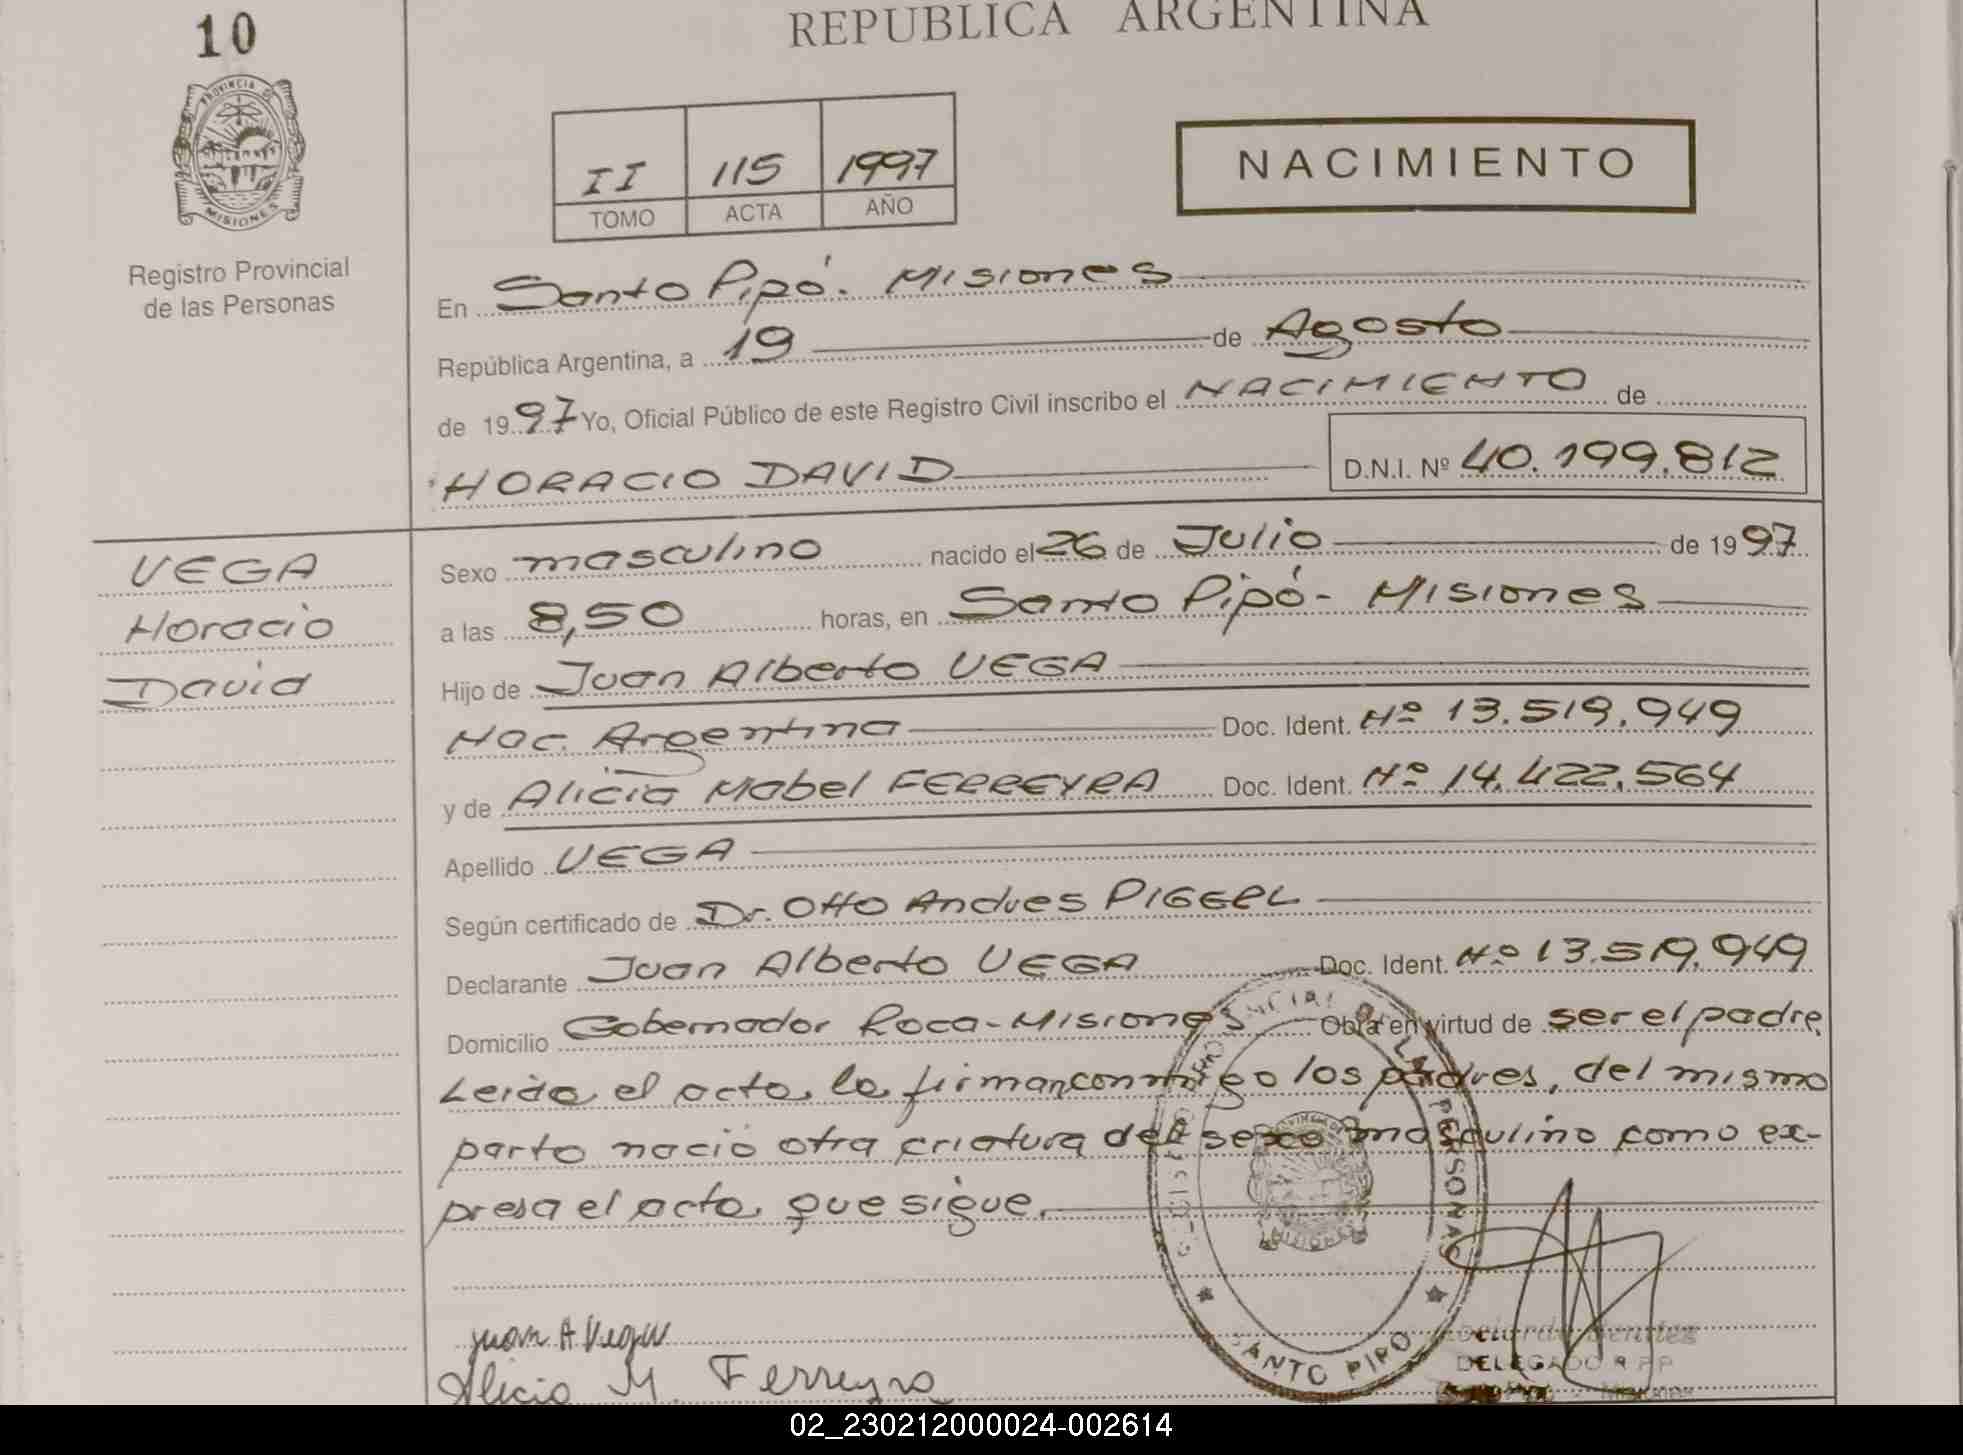 10
REPUBLICA ARGENTINA
PROVINCIA DE
MISIONES
Registro Provincial
de las Personas
II 115 1997
TOMO ACTA AÑO
NACIMIENTO
En Santo Pipó. Misiones
República Argentina, a 19 de Agosto
de 1997 Yo, Oficial Público de este Registro Civil inscribo el NACIMIENTO de
HORACIO DAVID D.N.I. Nº 40.199.812
VEGA
Horacio
David
Sexo masculino nacido el 26 de Julio de 1997
a las 8,50 horas, en Santo Pipó - Misiones
Hijo de Juan Alberto VEGA
Nac. Argentina Doc. Ident. Nº 13.519.949
y de Alicia Mabel FERREYRA Doc. Ident. Nº 14.422.564
Apellido VEGA
Según certificado de Dr. Otto Andres PIGERL
Declarante Juan Alberto VEGA Doc. Ident. Nº 13.519.949
Domicilio Gobernador Roca - Misiones Obra en virtud de ser el padre.
Leida el acta la firman conmigo los padres, del mismo
parto nació otra criatura del sexo masculino como ex-
presa el acta que sigue.
PERSONAS
SANTO PIPO
MISIONES
Juan A Vega
Alicia M. Ferreyra
Benitez
DELEGADO R.P.P.
02_230212000024-002614